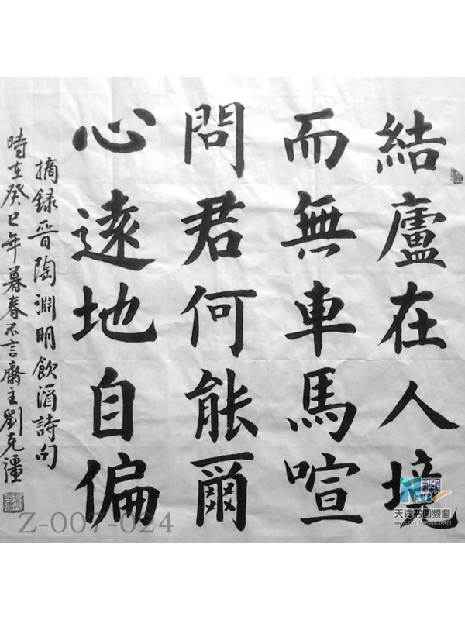 結廬在人境
而無車馬喧
問君何能爾
心遠地自偏
摘録晋陶淵明飲酒詩句
時在癸巳年暮春不言齋主劉克潼
Z-007-024